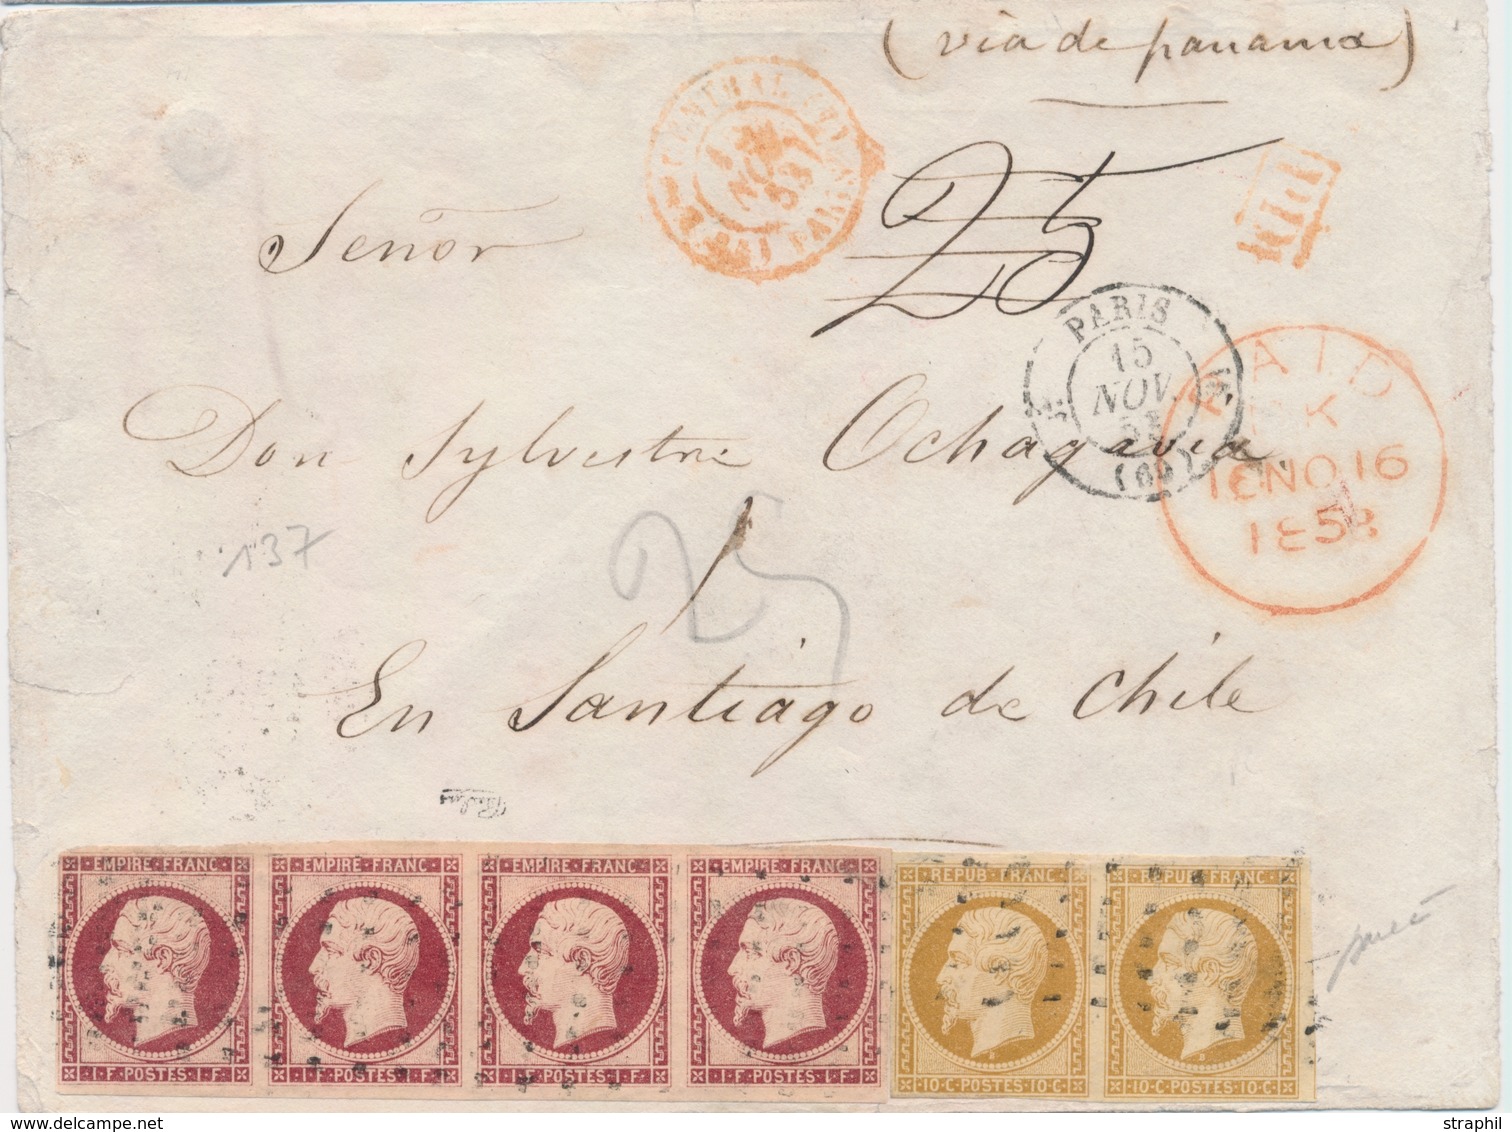 (via de panama)
25
PD
Señor
PARIS
15
NOV.
53
(60)
PAID
K
16 NO 16
1853
Don Sylvestre Ochagavia
137
25
En Santiago de Chile
EMPIRE FRANC EMPIRE FRANC EMPIRE FRANC EMPIRE FRANC REPUB FRANC REPUB FRANC
1 F POSTES 1 F 1 F POSTES 1 F 1 F POSTES 1 F 1 F POSTES 1 F 10 C POSTES 10 C 10 C POSTES 10 C
straphil